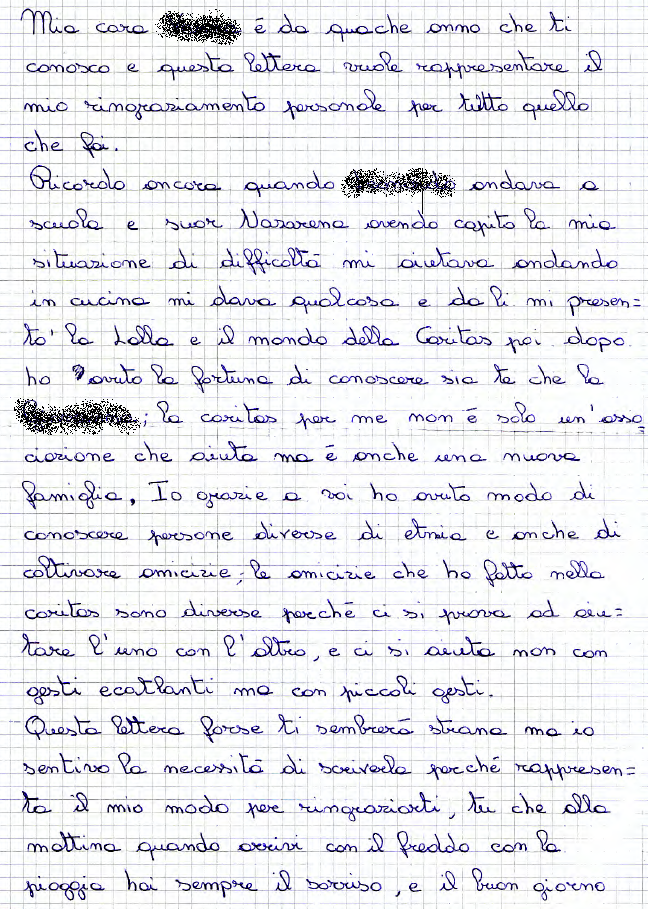 Mia cara è da quache anno che ti
conosco e questa lettera vuole rappresentare il
mio ringraziamento personale per tutto quello
che fai.
Ricordo ancora quando andava a
scuola e suor Nazarena avendo capito la mia
situazione di difficoltà mi aiutava andando
in cucina mi dava qualcosa e da lì mi presen=
tò la Lalla e il mondo della Caritas poi dopo
ho avuto la fortuna di conoscere sia te che la
; la caritas per me non è solo un'asso=
ciazione che aiuta ma è anche una nuova
famiglia. Io grazie a voi ho avuto modo di
conoscere persone diverse di etnia e anche di
coltivare amicizie; le amicizie che ho fatto nella
caritas sono diverse perché ci si prova ad aiu=
tare l'uno con l'altro, e ci si aiuta non con
gesti ecatlanti ma con piccoli gesti.
Questa lettera forse ti sembrerà strana ma io
sentivo la necessità di scriverla perché rappresen=
ta il mio modo per ringraziarti, tu che alla
mattina quando arrivi con il freddo con la
pioggia hai sempre il sorriso, e il buon giorno